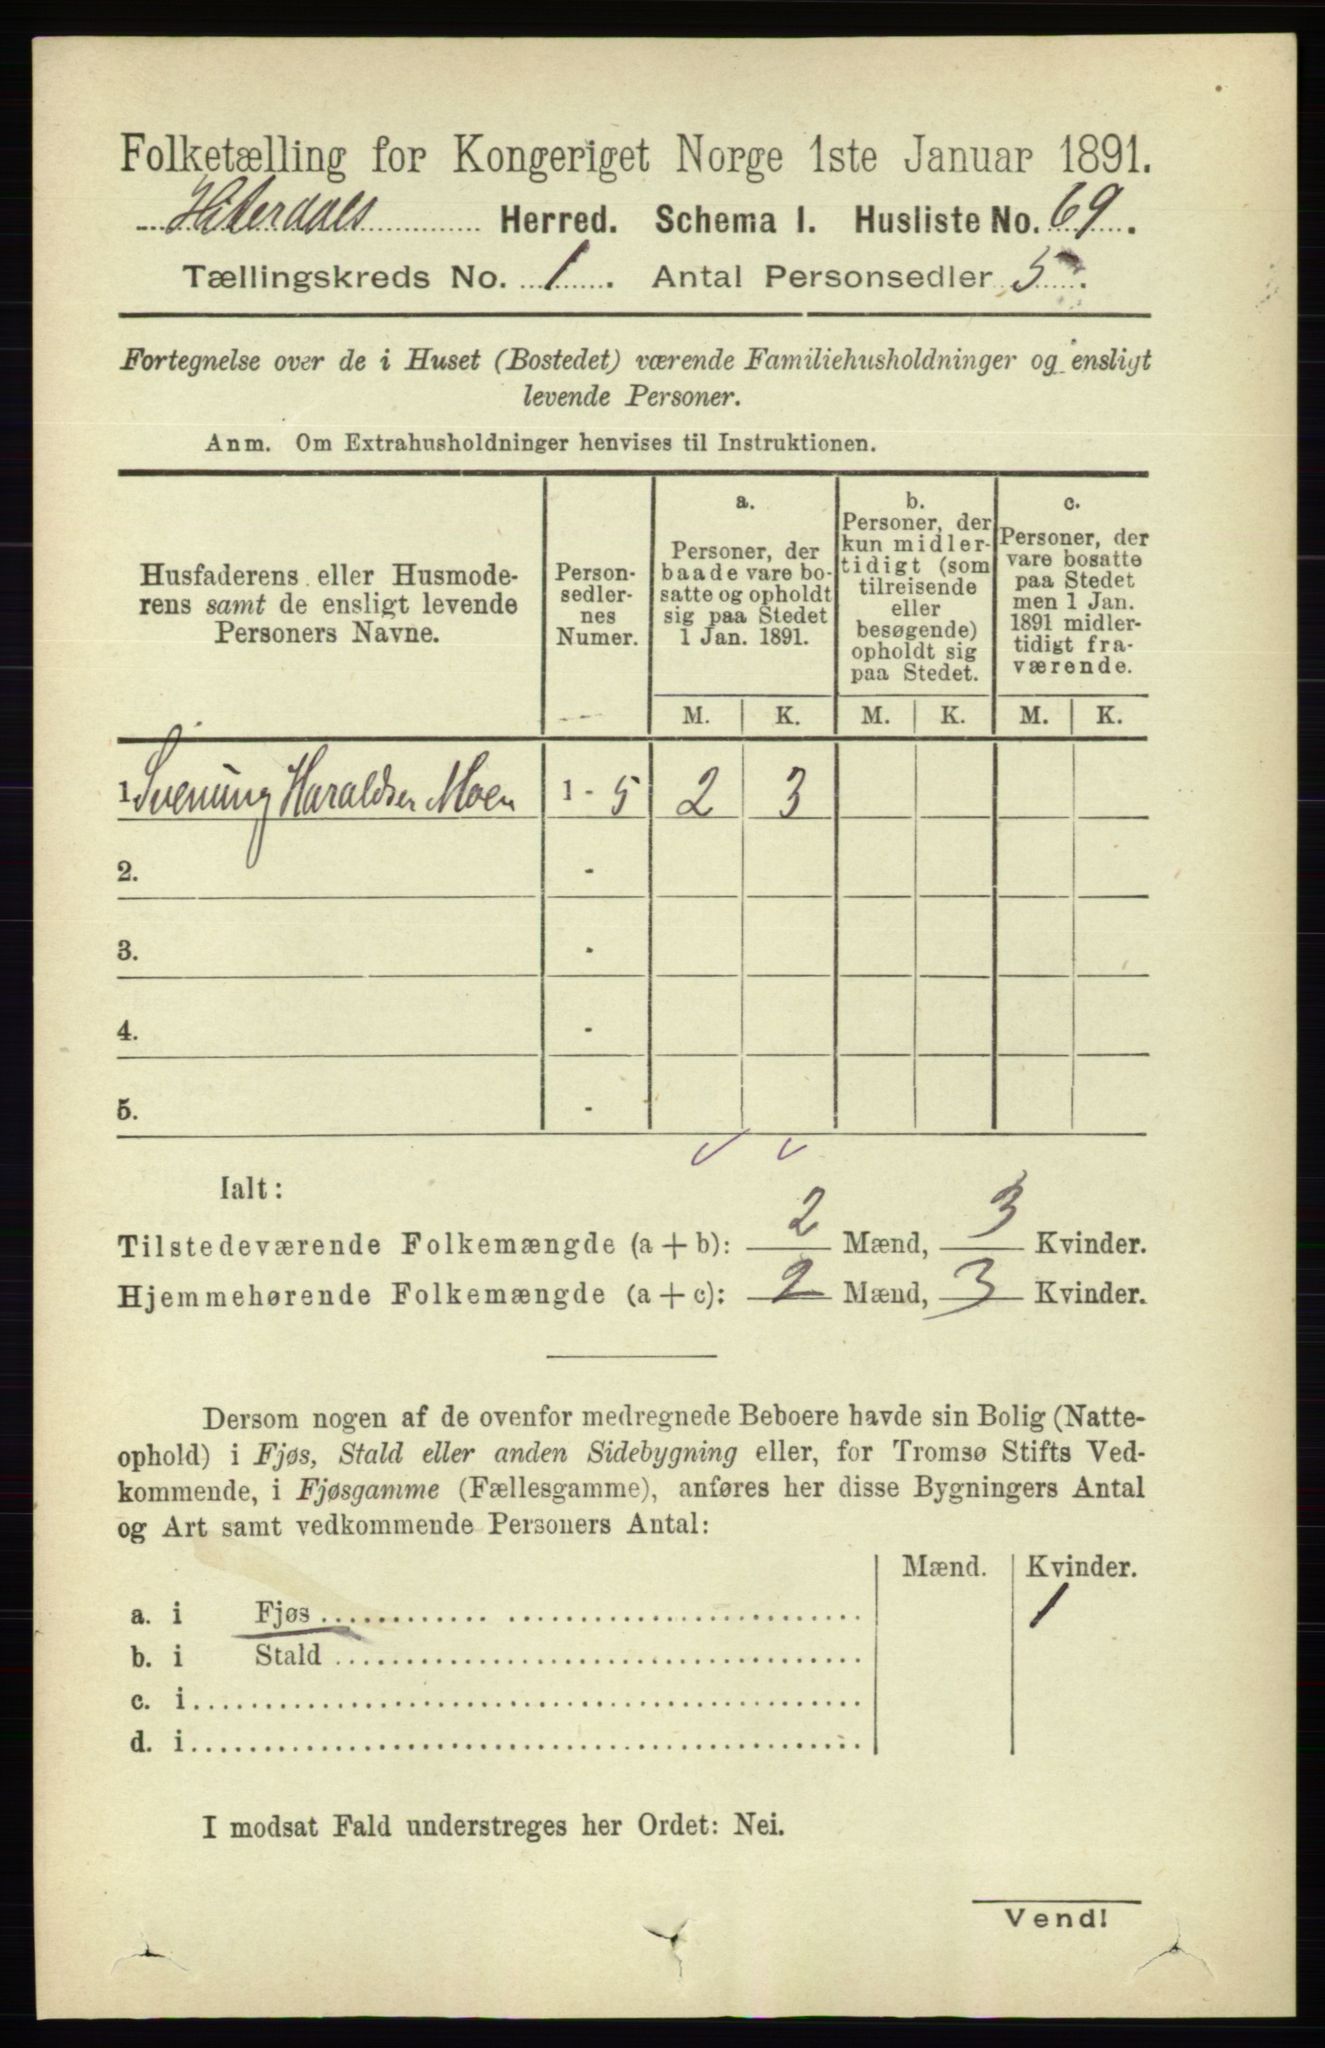 Folketælling for Kongeriget Norge 1ste Januar 1891.
Hiterdals Herred. Schema I. Husliste No. 69.
Tællingskreds No. 1. Antal Personsedler 5.
Fortegnelse over de i Huset (Bostedet) værende Familiehusholdninger og ensligt
levende Personer.
Anm. Om Extrahusholdninger henvises til Instruktionen.
Husfaderens eller Husmode-
rens samt de ensligt levende
Personers Navne.
Person-
sedler-
nes
Numer.
a.
Personer, der
baade vare bo-
satte og opholdt
sig paa Stedet
1 Jan. 1891.
b.
Personer, der
kun midler-
tidigt (som
tilreisende
eller
besøgende)
opholdt sig
paa Stedet.
c.
Personer, der
vare bosatte
paa Stedet
men 1 Jan.
1891 midler-
tidigt fra-
værende.
M. K. M. K. M. K.
1. Svenung Haraldsen Moen 1 - 5 2 3
2. -
3. -
4. -
5. -
Ialt:
Tilstedeværende Folkemængde (a + b): 2 Mænd, 3 Kvinder.
Hjemmehørende Folkemængde (a + c): 2 Mænd, 3 Kvinder.
Dersom nogen af de ovenfor medregnede Beboere havde sin Bolig (Natte-
ophold) i Fjøs, Stald eller anden Sidebygning eller, for Tromsø Stifts Ved-
kommende, i Fjøsgamme (Fællesgamme), anføres her disse Bygningers Antal
og Art samt vedkommende Personers Antal:
Mænd. Kvinder.
a. i Fjøs 1
b. i Stald
c. i
d. i
I modsat Fald understreges her Ordet: Nei.
Vend!